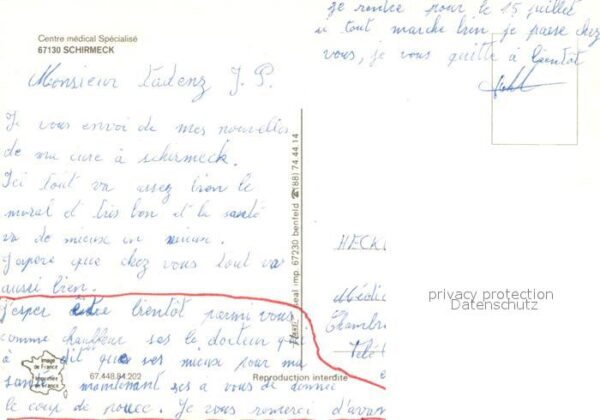 Centre médical Spécialisé
67130 SCHIRMECK
Monsieur Ladenz J. P.
Je vous envoi de mes nouvelles
de ma cure à schirmeck.
Ici tout va assez bien le
moral et très bon et la santé
va de mieux en mieux.
J'espère que chez vous tout va
aussi bien.
j'esper être bientôt parmi vous
comme chauffeur le docteur
à dit que mieux pour ma
santé maintenant a vous de donner
le coup de pouce. Je vous remerci d'avan
je rentre pour le 15 juillet
si tout marche bien je passe chez
vous, je vous quitte à bientôt
imp. 67230 benfeld ☎(88) 74.44.14
HECK
Médic
Chambr
Télé
image
de France
67.448.84.202
Reproduction interdite
privacy protection
Datenschutz